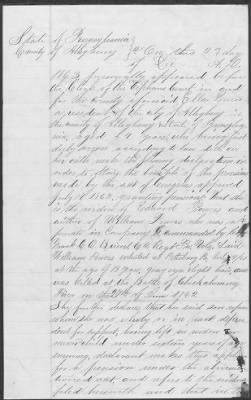 State of Pennsylvania
County of Allegheny } On this 27 day
of A.D.
1863, personally appeared before
the Clerk of the Orphans Court in and
for the County aforesaid Ellen Powers
a resident of the city of Allegheny in
the County of Allegheny State of Pennsylva-
nia, aged years, who being first
duly sworn according to law doth on
her oath make the following declaration in
order to obtain the benefits of the provision
made by the act of Congress approved
July 14 1862, granting pensions: That she
is the widow of Edward Powers and
mother of William Powers who was a
private in Company commanded by
Regt Pa Vols, Said
William Powers enlisted at Pittsburg Pa
at the age of years, gray eyes light hair and
was killed at the Battle of Chickahominy
River on the of June 1862
She further declares that her said son upon
whom she was wholly or in part depen-
dent for support, having left no widow or
minor child under sixteen years of age
surviving, declarant makes this applica-
tion for a pension under the above men-
tioned act, and refers to the evidence
filed herewith and that in